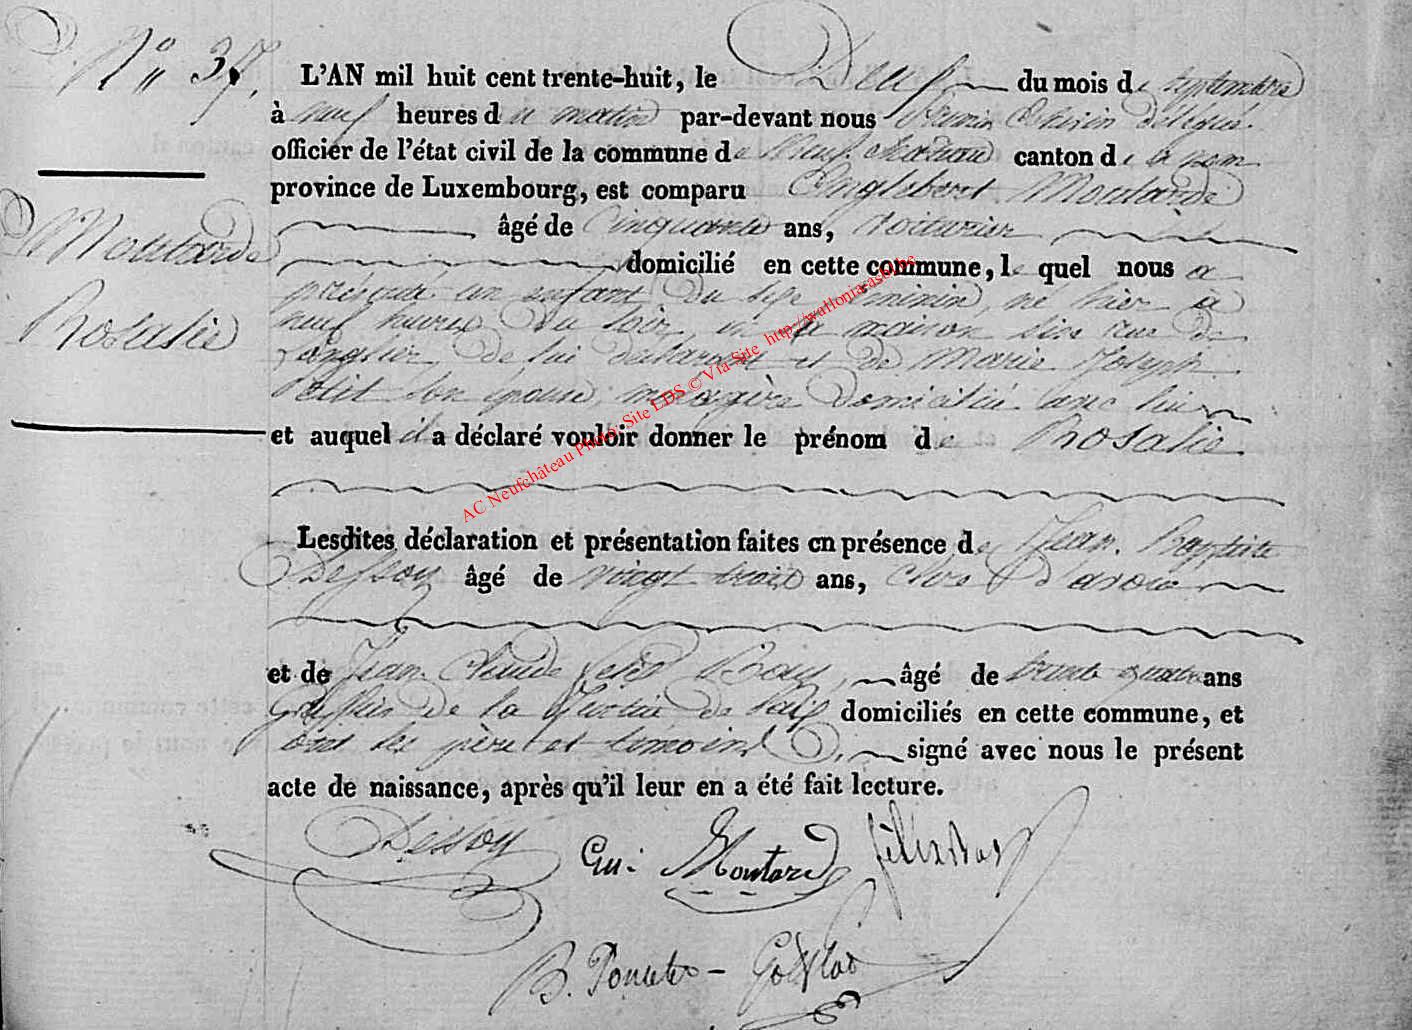 N° 37.
L'AN mil huit cent trente-huit, le Deux du mois de septembre
à neuf heures du matin par-devant nous délégué
officier de l'état civil de la commune de Neufchateau canton de ce nom
province de Luxembourg, est comparu Englebert Moutarde
Moutarde
Rosalie
âgé de Cinquante ans, voiturier
domicilié en cette commune, lequel nous a
présenté un enfant du sexe féminin né hier à
neuf heures du soir, en sa maison sise rue du
de lui déclarant et de Marie Joseph
Petit son épouse, ménagère domiciliée avec lui
et auquel il a déclaré vouloir donner le prénom de Rosalie
AC Neufchâteau Photo: Site LDS © Via Site http://wallonia-asbl.be
Lesdites déclaration et présentation faites en présence de Jean Baptiste
Dessoy âgé de vingt trois ans, clerc d'avoué
et de Jean Claude âgé de trente quatre ans
Greffier de la Justice de Paix domiciliés en cette commune, et
ont les père et témoins signé avec nous le présent
acte de naissance, après qu'il leur en a été fait lecture.
Dessoy Moutarde